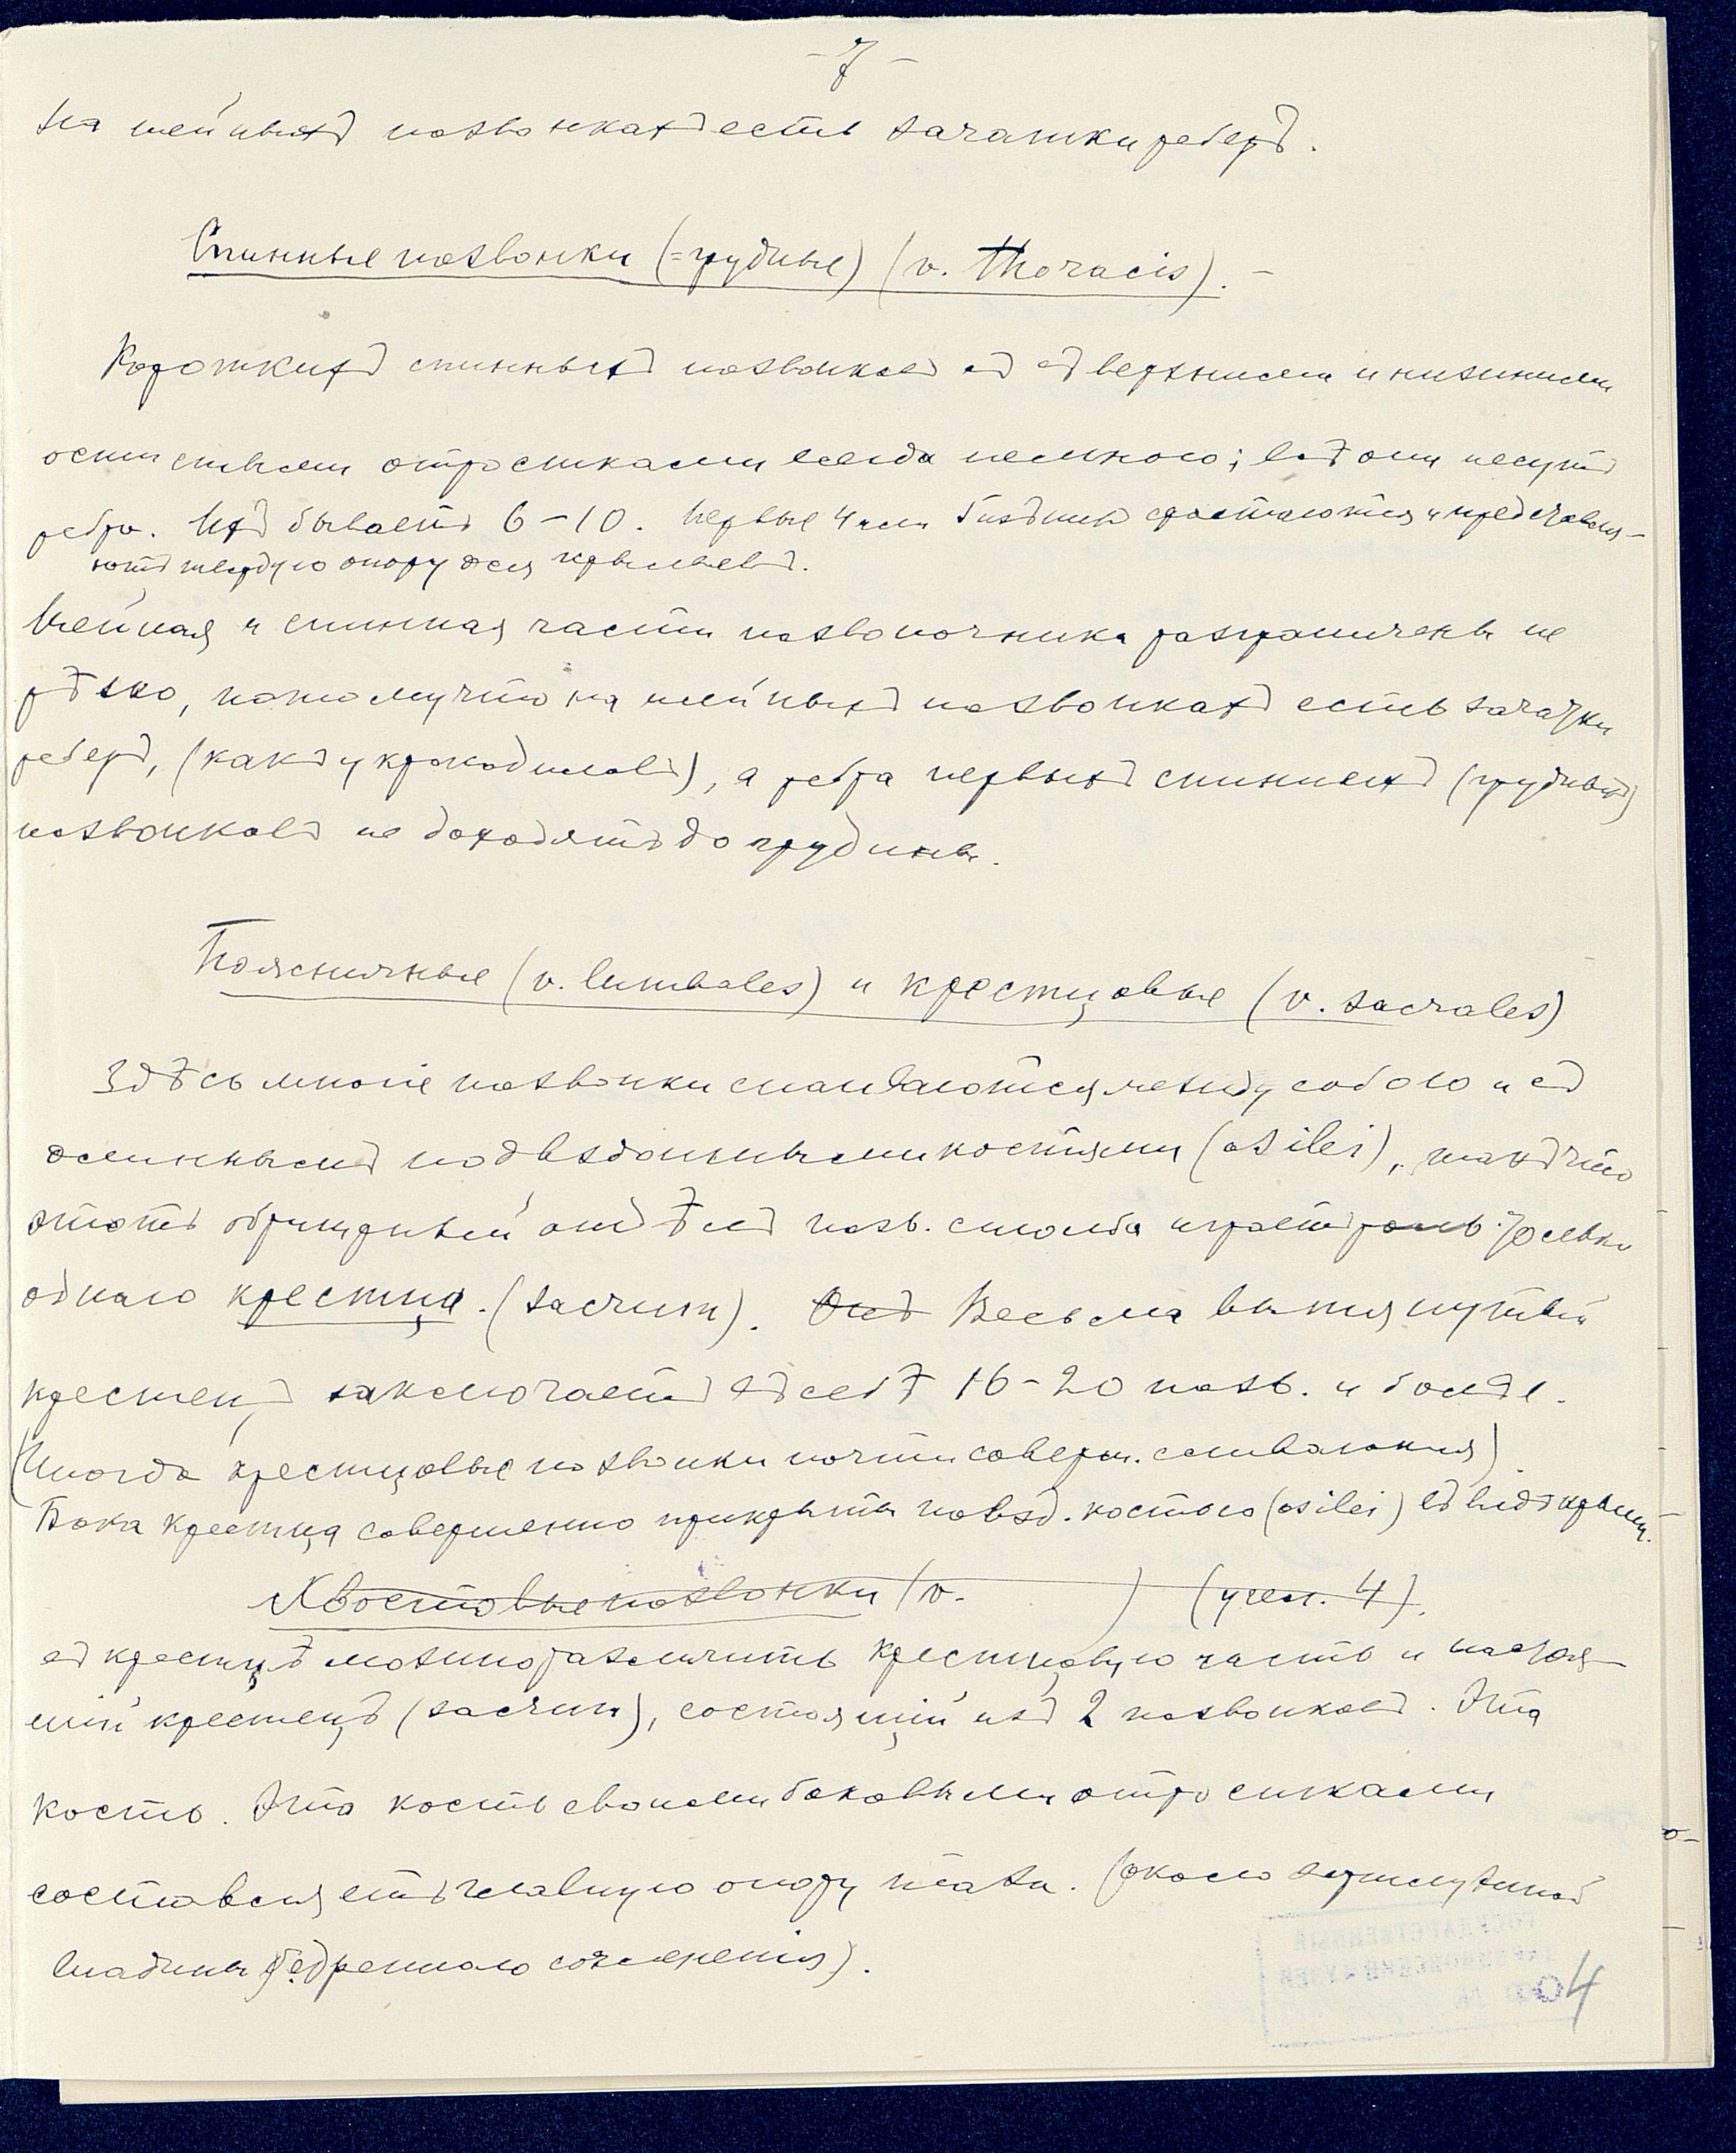 - 7 -
На шейныхъ позвонкахъ есть зачатки реберъ.
Спинные позвонки (=грудные) (v. thoracis). -
Короткихъ спинныхъ позвонковъ съ верхними и нижними
остистыми отростками всегда немного; всѣ они несутъ
ребра. Ихъ бываетъ 6-10. Первые 4 или срастаются и представля-
ютъ твердую опору для крыльевъ.
Шейная и спинная части позвоночника разграничены не
рѣзко, потому что на шейныхъ позвонкахъ есть зачатки
реберъ, (какъ у крокодиловъ), а ребра первыхъ спинныхъ (грудныхъ)
позвонковъ не доходятъ до грудины.
Поясничные (v. lumbales) и крестцовые (v. sacrales)
Здѣсь многіе позвонки спаиваются между собою и съ
длинными подвздошными костями (os ilei), такъ что
этотъ обширный отдѣлъ позв. столба играетъ роль только
одного крестца. (sacrum). Онъ Весьма вытянутый
крестецъ заключаетъ въ себѣ 16-20 позв. и болѣе.
(Иногда крестцовые позвонки почти соверш. сливаются)
Бока крестца совершенно прикрыты повзд. костью (os ilei) въ видѣ крыши.
Хвостовые позвонки (v. ) (учен. 4).
въ крестцѣ можно различить крестцовую часть и настоя-
щій крестецъ (sacrum), состоящій изъ 2 позвонковъ. Эта
кость. Эта кость своими боковыми отростками
составляетъ главную опору таза. (около вертлужной
впадины бедреннаго сочлененія).
04